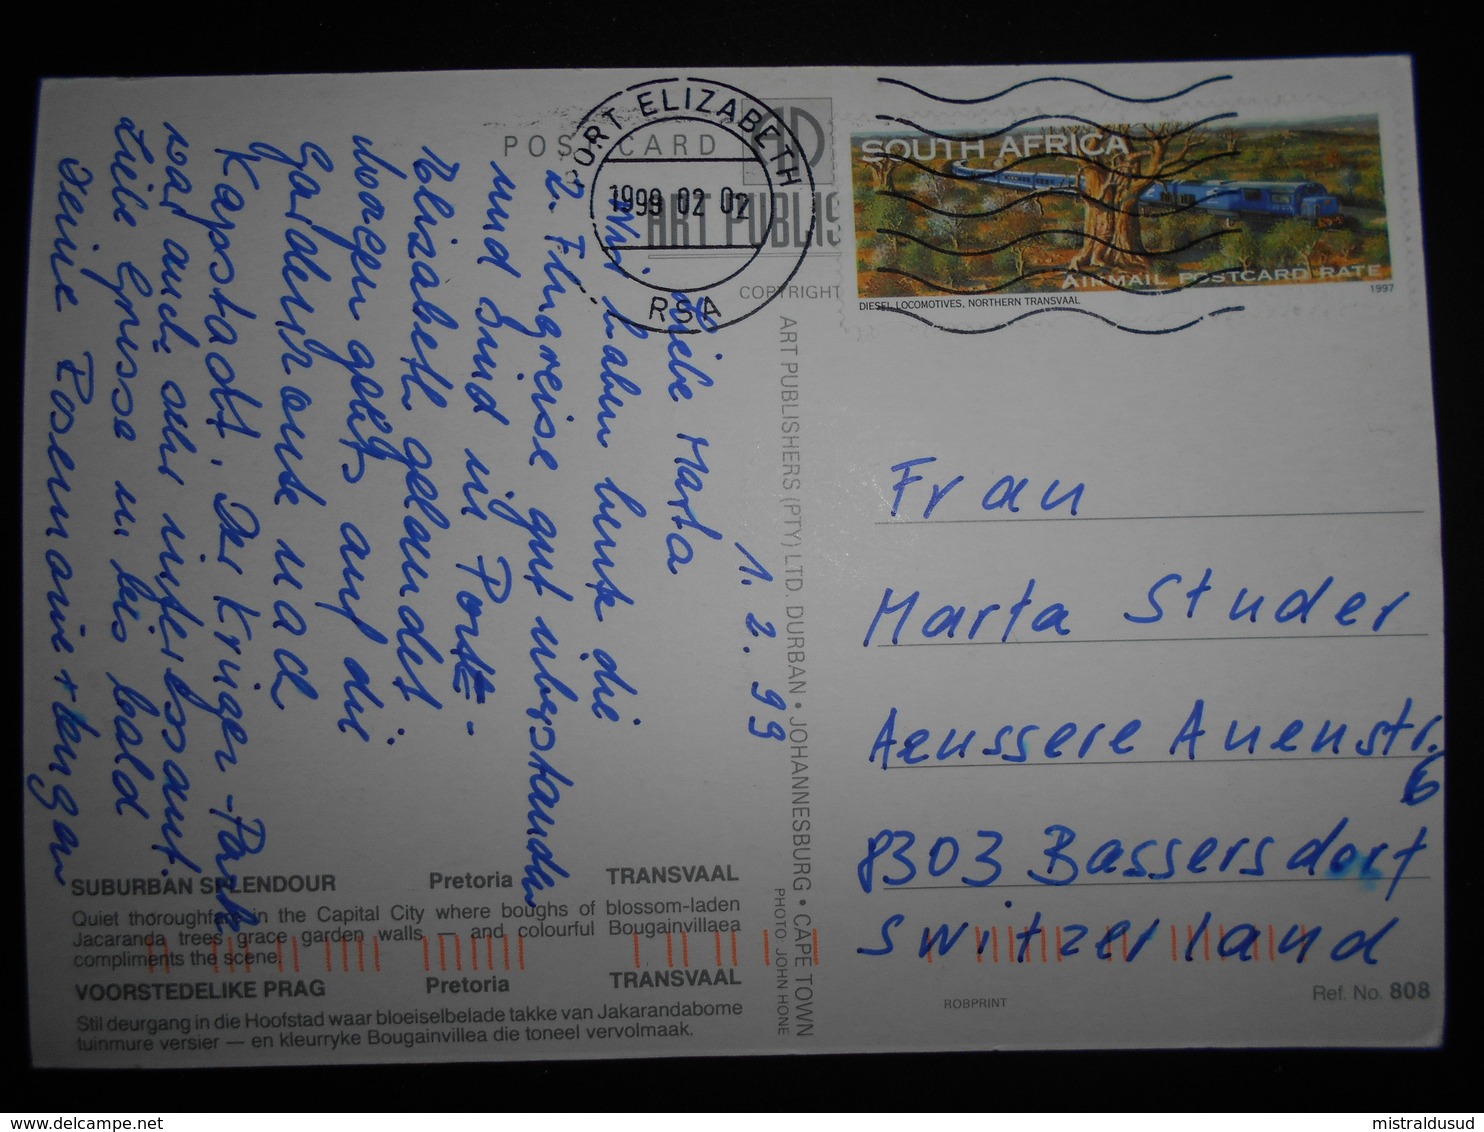 POST CARD
ART PUBLIS
COPYRIGHT
PORT ELIZABETH
1999 02 02
RSA
SOUTH AFRICA
AIRMAIL POSTCARD RATE
DIESEL LOCOMOTIVES, NORTHERN TRANSVAAL
1997
1. 2. 99
Liebe Marta
Wir haben heute die
2. Flugreise gut überstanden
und sind in Port-
Elizabeth gelandet
morgen geht's auf die
Gardenroute nach
Kapstadt. Der Krüger-Park
war auch sehr interessant.
Liebe Grüsse u. bis bald
Deine Rosemarie +
ART PUBLISHERS (PTY) LTD. DURBAN • JOHANNESBURG • CAPE TOWN
PHOTO: JOHN HONE
Frau
Marta Studer
Aeussere Auenstr.
6
8303 Bassersdorf
Switzerland
SUBURBAN SPLENDOUR Pretoria TRANSVAAL
Quiet thoroughfare in the Capital City where boughs of blossom-laden
Jacaranda trees grace garden walls — and colourful Bougainvillaea
compliments the scene.
VOORSTEDELIKE PRAG Pretoria TRANSVAAL
Stil deurgang in die Hoofstad waar bloeiselbelade takke van Jakarandabome
tuinmure versier — en kleurryke Bougainvillea die toneel vervolmaak.
ROBPRINT
Ref. No. 808
mistraldusud